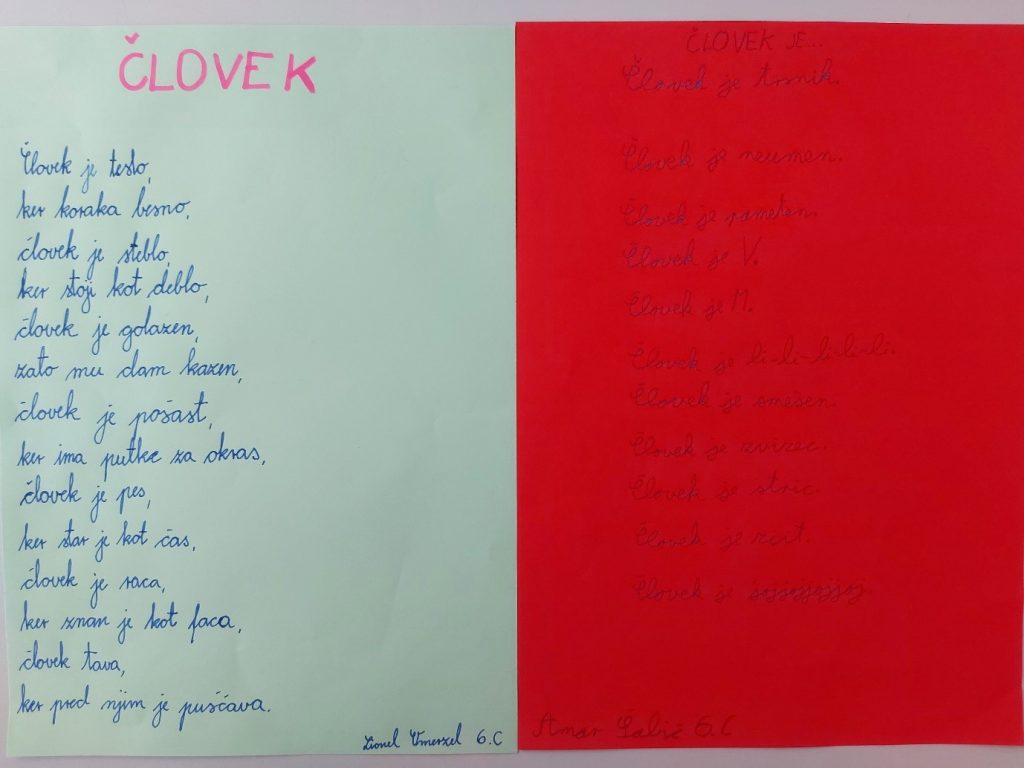 ČLOVEK
Človek je testo,
ker koraka besno,
človek je steblo,
ker stoji kot deblo,
človek je golazen,
zato mu dam kazen,
človek je pošast,
ker ima putke za okras,
človek je pes,
ker star je kot čas,
človek je raca,
ker znan je kot faca,
človek tava,
ker pred njim je puščava.
Lionel Vmerzel 6.C
ČLOVEK JE...
Človek je trsnik.
Človek je neumen.
Človek je pameten.
Človek je V.
Človek je M.
Človek je li-li-li-li-li.
Človek je smešen.
Človek je zvizec.
Človek je stric.
Človek je
Človek je
Amar Šabić 6.C